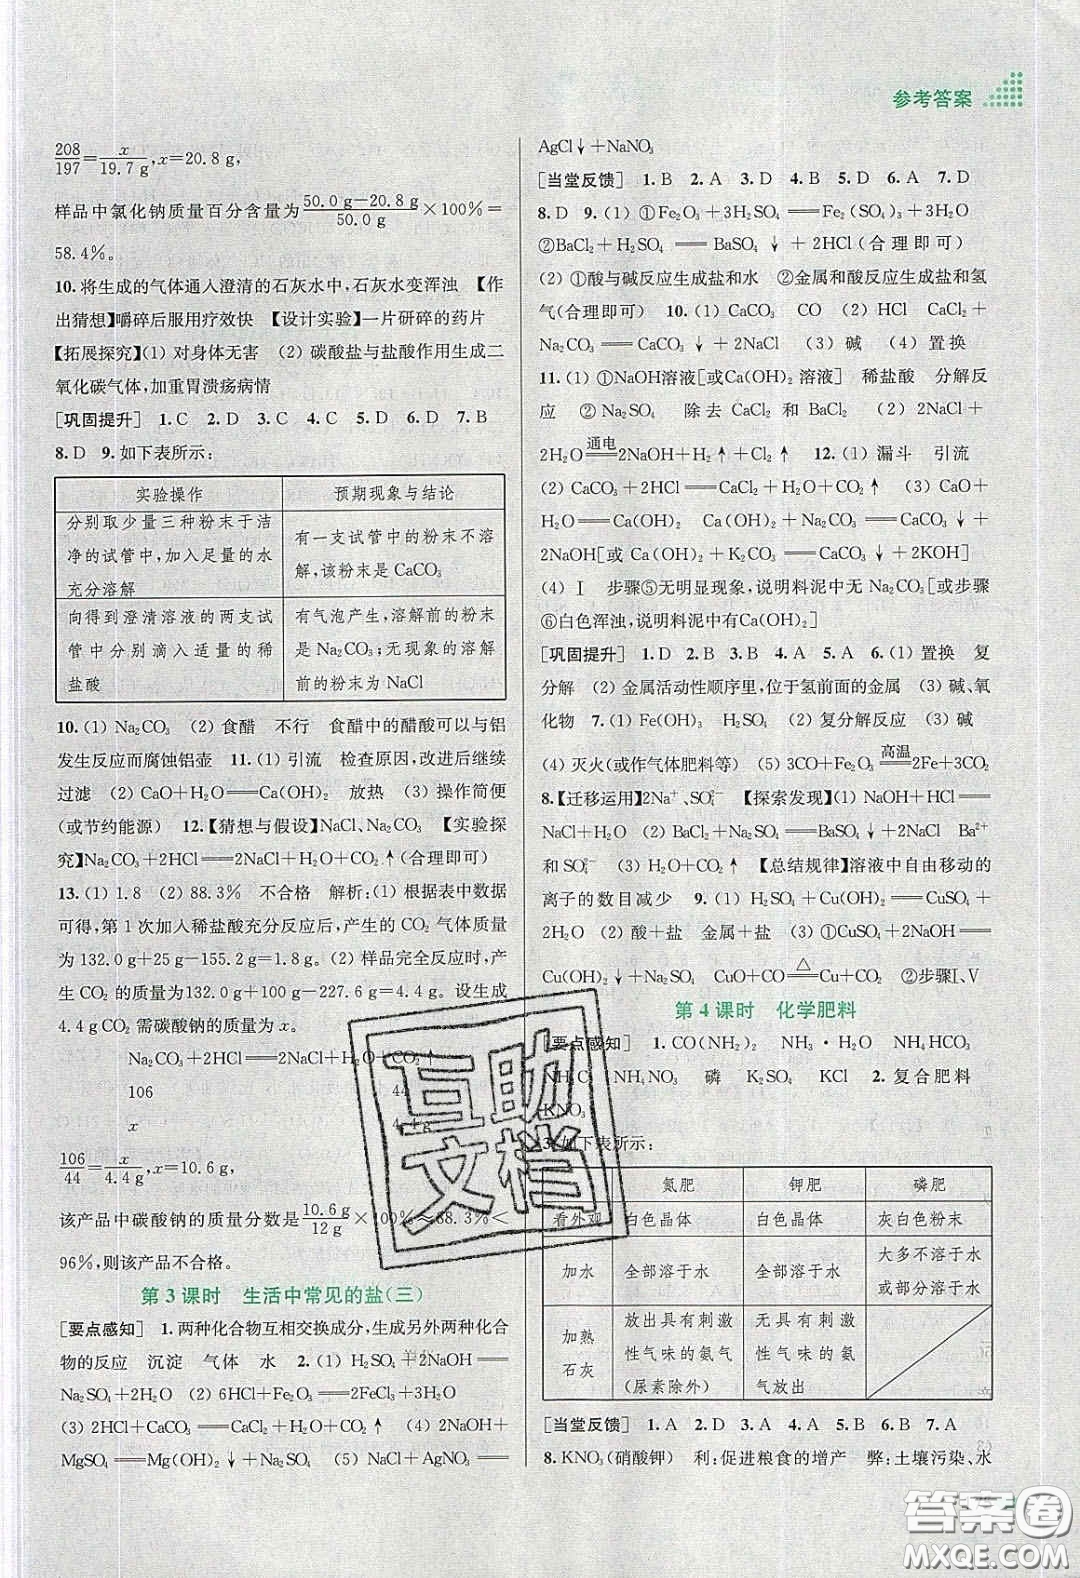 参考答案
208/197=x/19.7 g,x=20.8 g,
样品中氯化钠质量百分含量为(50.0 g-20.8 g)/50.0 g×100%=
58.4%。
10.将生成的气体通入澄清的石灰水中,石灰水变浑浊 【作
出猜想】嚼碎后服用疗效快 【设计实验】一片研碎的药片
【拓展探究】(1) 对身体无害 (2) 碳酸盐与盐酸作用生成二
氧化碳气体,加重胃溃疡病情
[巩固提升] 1.C 2.D 3.C 4.C 5.D 6.D 7.B
8.D 9.如下表所示:
实验操作 预期现象与结论
分别取少量三种粉末于洁
净的试管中,加入足量的水
充分溶解
有一支试管中的粉末不溶
解,该粉末是CaCO₃
向得到澄清溶液的两支试
管中分别滴入适量的稀
盐酸
有气泡产生,溶解前的粉末
是Na₂CO₃;无现象的溶解
前的粉末为NaCl
10.(1) Na₂CO₃ (2) 食醋 不行 食醋中的醋酸可以与铝
发生反应而腐蚀铝壶 11.(1) 引流 检查原因,改进后继续
过滤 (2) CaO+H₂O══Ca(OH)₂ 放热 (3) 操作简便
(或节约能源) 12.【猜想与假设】NaCl、Na₂CO₃ 【实验探
究】Na₂CO₃+2HCl══2NaCl+H₂O+CO₂↑(合理即可)
13.(1) 1.8 (2) 88.3% 不合格 解析:(1) 根据表中数据
可得,第1次加入稀盐酸充分反应后,产生的CO₂气体质量
为132.0 g+25 g-155.2 g=1.8 g。(2) 样品完全反应时,产
生CO₂的质量为132.0 g+100 g-227.6 g=4.4 g。设生成
4.4 g CO₂需碳酸钠的质量为x。
Na₂CO₃+2HCl══2NaCl+H₂O+CO₂↑
106 44
x 4.4 g
106/44=x/4.4 g,x=10.6 g,
该产品中碳酸钠的质量分数是10.6 g/12 g×100%≈88.3%<
96%,则该产品不合格。
第3课时 生活中常见的盐(三)
[要点感知] 1.两种化合物互相交换成分,生成另外两种化合
物的反应 沉淀 气体 水 2.(1) H₂SO₄+2NaOH══
Na₂SO₄+2H₂O (2) 6HCl+Fe₂O₃══2FeCl₃+3H₂O
(3) 2HCl+CaCO₃══CaCl₂+H₂O+CO₂↑ (4) 2NaOH+
MgSO₄══Mg(OH)₂↓+Na₂SO₄ (5) NaCl+AgNO₃══
AgCl↓+NaNO₃
[当堂反馈] 1.B 2.A 3.D 4.B 5.D 6.A 7.D
8.D 9.(1) ①Fe₂O₃+3H₂SO₄══Fe₂(SO₄)₃+3H₂O
②BaCl₂+H₂SO₄══BaSO₄↓+2HCl(合理即可)
(2) ①酸与碱反应生成盐和水 ②金属和酸反应生成盐和氢
气(合理即可) 10.(1) CaCO₃ CO (2) HCl CaCl₂+
Na₂CO₃══CaCO₃↓+2NaCl (3) 碱 (4) 置换
11.(1) ①NaOH溶液[或Ca(OH)₂溶液] 稀盐酸 分解反
应 ②Na₂SO₄ 除去CaCl₂和BaCl₂ (2) 2NaCl+
2H₂O═通电═2NaOH+H₂↑+Cl₂↑ 12.(1) 漏斗 引流
(2) CaCO₃+2HCl══CaCl₂+H₂O+CO₂↑ (3) CaO+
H₂O══Ca(OH)₂ Ca(OH)₂+Na₂CO₃══CaCO₃↓+
2NaOH[或Ca(OH)₂+K₂CO₃══CaCO₃↓+2KOH]
(4) Ⅰ 步骤⑤无明显现象,说明料泥中无Na₂CO₃[或步骤
⑥白色浑浊,说明料泥中有Ca(OH)₂]
[巩固提升] 1.D 2.B 3.B 4.A 5.A 6.(1) 置换 复
分解 (2) 金属活动性顺序里,位于氢前面的金属 (3) 碱、氧
化物 7.(1) Fe(OH)₃ H₂SO₄ (2) 复分解反应 (3) 碱
(4) 灭火(或作气体肥料等) (5) 3CO+Fe₂O₃═高温═2Fe+3CO₂
8.【迁移运用】2Na⁺、SO₄²⁻ 【探索发现】(1) NaOH+HCl══
NaCl+H₂O (2) BaCl₂+Na₂SO₄══BaSO₄↓+2NaCl Ba²⁺
和SO₄²⁻ (3) H₂O+CO₂↑ 【总结规律】溶液中自由移动的
离子的数目减少 9.(1) H₂SO₄+Cu(OH)₂══CuSO₄+
2H₂O (2) 酸+盐 金属+盐 (3) ①CuSO₄+2NaOH══
Cu(OH)₂↓+Na₂SO₄ CuO+CO═△═Cu+CO₂ ②步骤Ⅰ、Ⅴ
第4课时 化学肥料
[要点感知] 1.CO(NH₂)₂ NH₃·H₂O NH₄HCO₃
NH₄Cl NH₄NO₃ 磷 K₂SO₄ KCl 2.复合肥料
KNO₃
3.如下表所示:
氮肥 钾肥 磷肥
看外观 白色晶体 白色晶体 灰白色粉末
加水 全部溶于水 全部溶于水 大多不溶于水
或部分溶于水
加熟
石灰
放出具有刺激
性气味的氨气
(尿素除外)
无具有刺激
性气味的氨
气放出
[当堂反馈] 1.A 2.D 3.A 4.C 5.A 6.B 7.A
8.KNO₃(硝酸钾) 利:促进粮食的增产 弊:土壤污染、水
互助
文档
答案圈
MXQE.COM